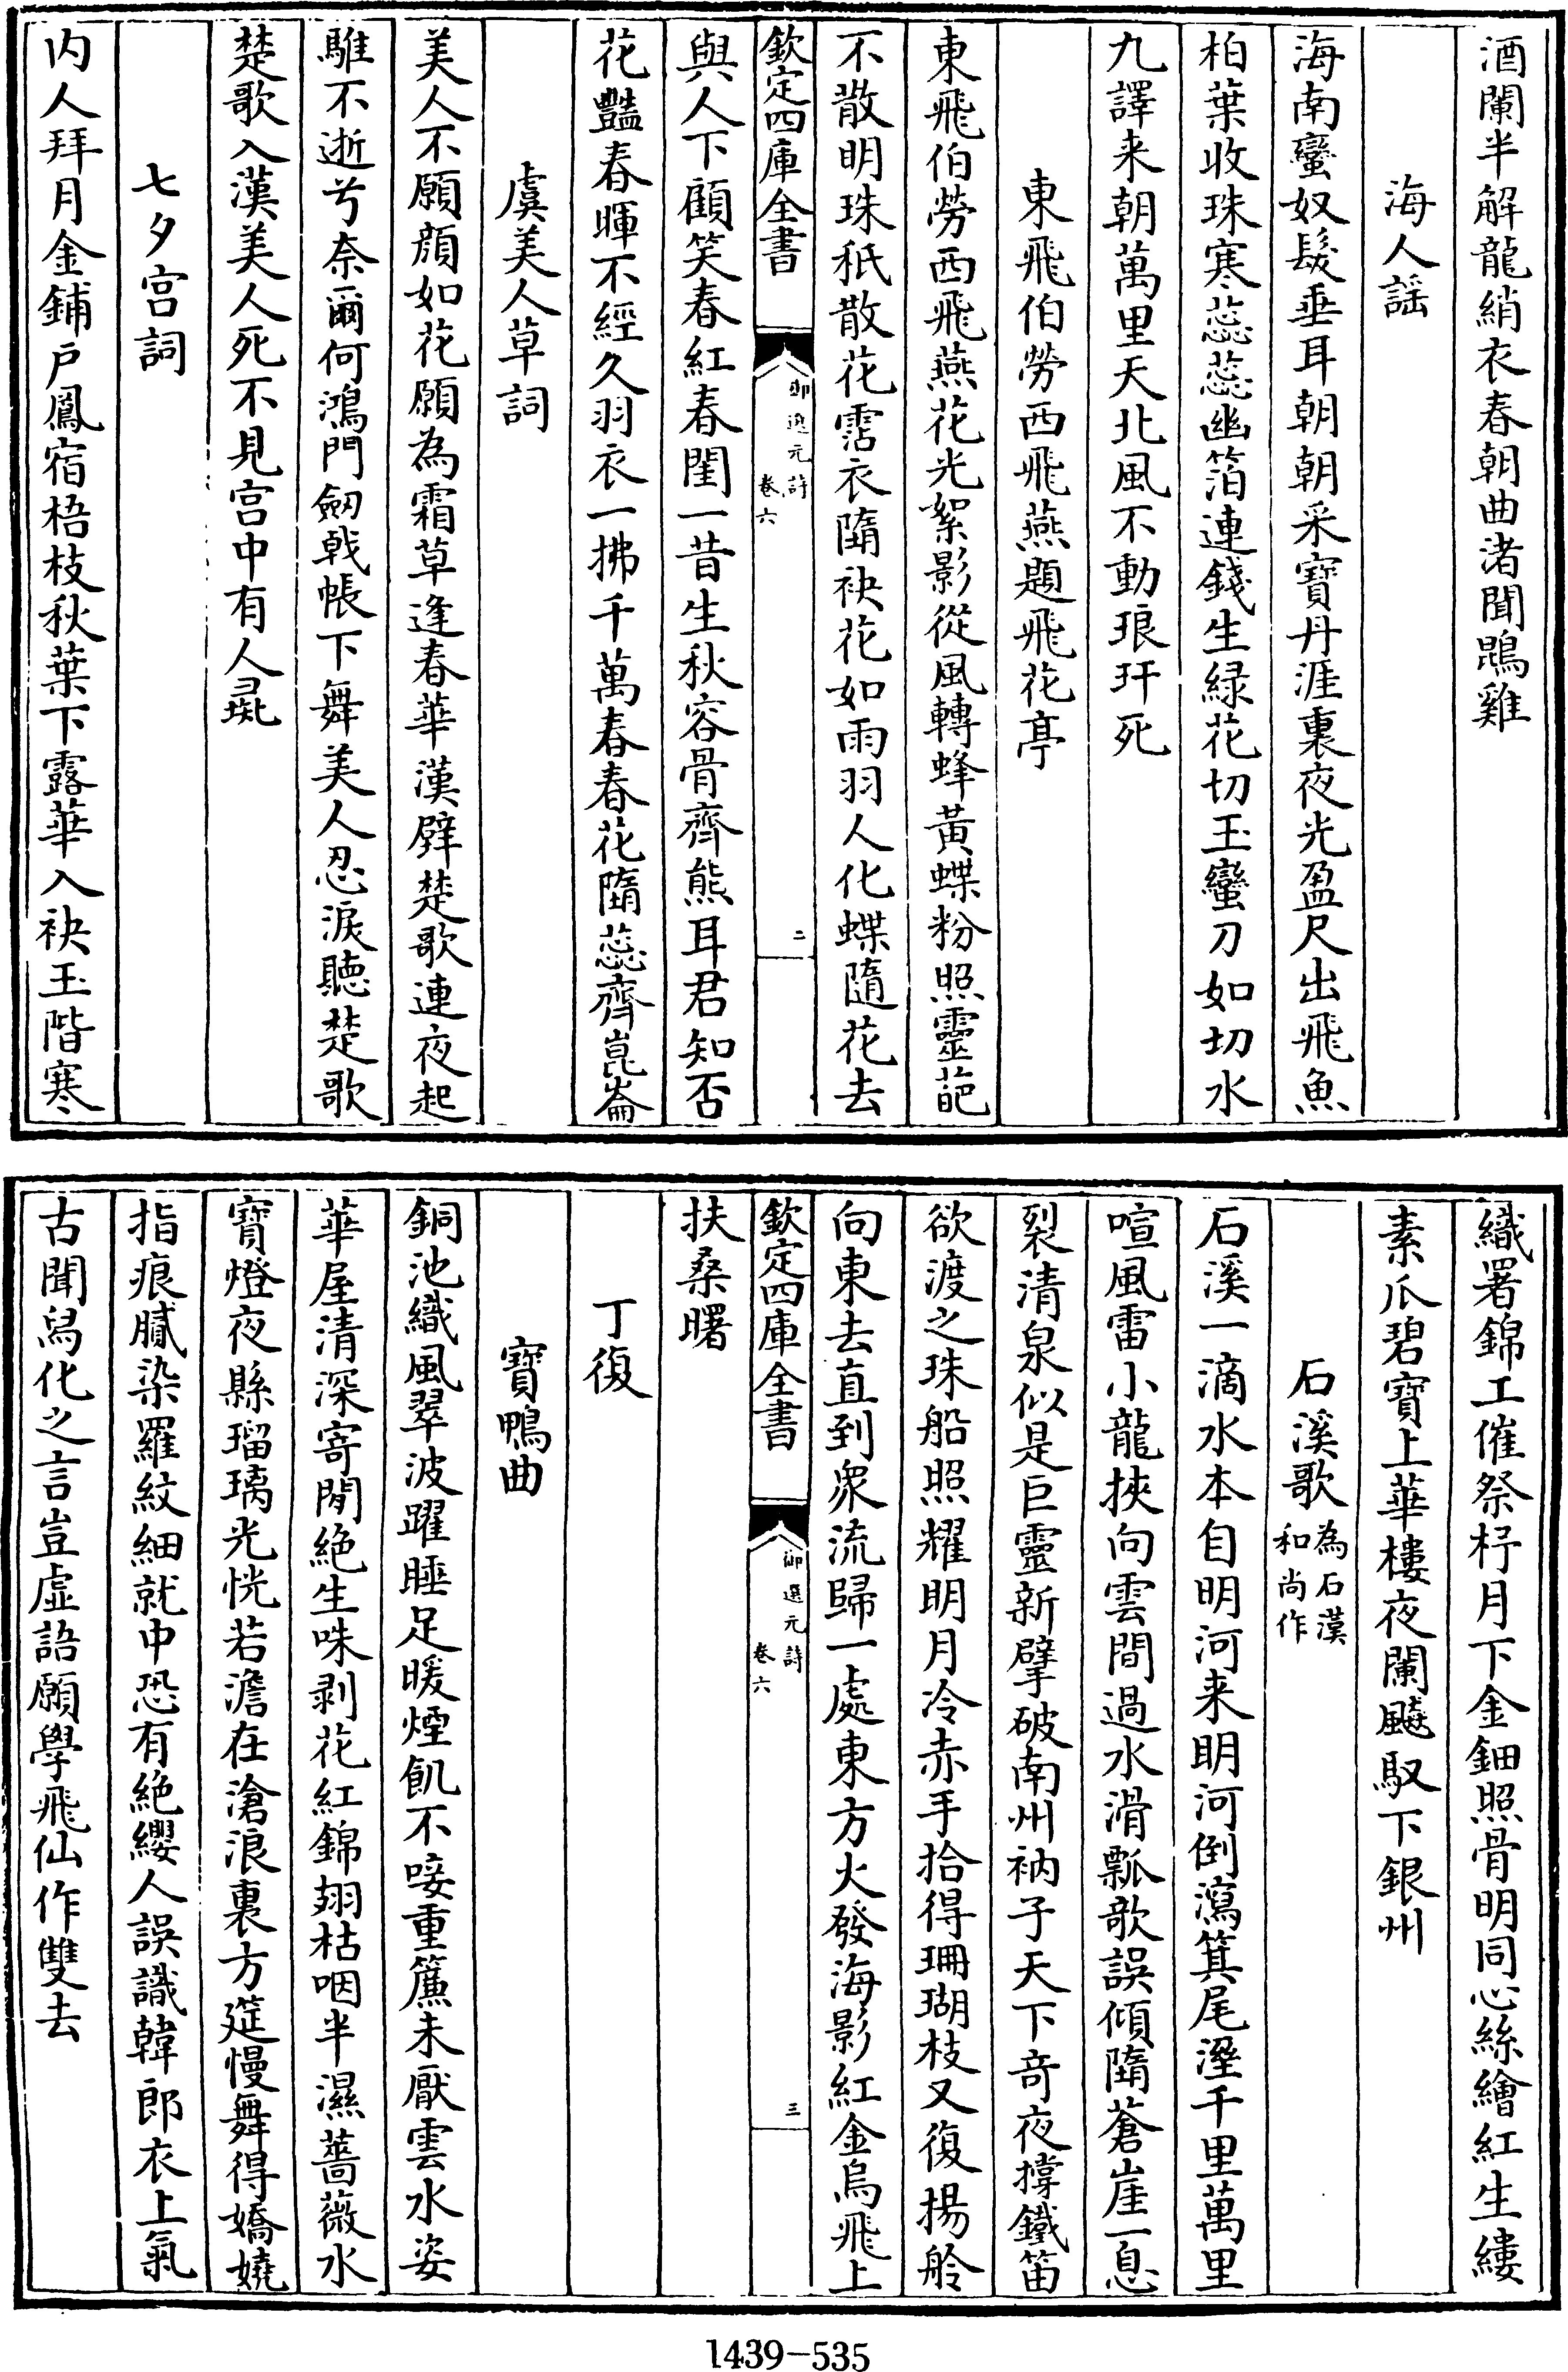 酒闌半解龍綃衣春朝曲渚聞鵾雞
海人謡
海南蠻奴髮垂耳朝朝采寶丹涯裏夜光盈尺出飛魚
柏葉收珠寒蕊蕊幽箔連錢生緑花切玉蠻刀如切水
九譯来朝萬里天北風不動琅玕死
東飛伯勞西飛燕題飛花亭
東飛伯勞西飛燕花光絮影從風轉蜂黃蝶粉照靈葩
不散明珠秪散花霑衣隋袂花如雨羽人化蝶隨花去
欽定四庫全書
御選元詩
卷六
二
與人下顧笑春紅春閨一昔生秋容骨齊熊耳君知否
花豔春暉不經久羽衣一拂千萬春春花隋蕊齊崑崙
虞美人草詞
美人不願顔如花願為霜草逢春華漢壁楚歌連夜起
騅不逝兮奈爾何鴻門劒戟帳下舞美人忍淚聽楚歌
楚歌入漢美人死不見宫中有人彘
七夕宫詞
内人拜月金鋪户鳳宿梧枝秋葉下露華入袂玉階寒
織署錦工催祭杼月下金鈿照骨明同心絲繪紅生縷
素爪碧寶上華樓夜闌飈馭下銀州
石溪歌
為石漢
和尚作
石溪一滴水本自明河来明河倒瀉箕尾溼千里萬里
喧風雷小龍挾向雲間過水滑瓢欹誤傾隋蒼崖一息
裂清泉似是巨靈新擘破南州衲子天下奇夜撐鐵笛
欲渡之珠船照耀明月冷赤手拾得珊瑚枝又復揚舲
向東去直到衆流歸一處東方火發海影紅金烏飛上
欽定四庫全書
御選元詩
卷六
三
扶桑曙
丁復
寶鴨曲
銅池織風翠波躍睡足暖煙飢不唼重簾未厭雲水姿
華屋清深寄閒絶生咮剥花紅錦翅枯咽半濕薔薇水
寶燈夜縣瑠璃光恍若澹在滄浪裏方筵慢舞得嬌嬈
指痕膩染羅紋細就中恐有絶纓人誤識韓郎衣上氣
古聞舄化之言豈虚語願學飛仙作雙去
1439-535